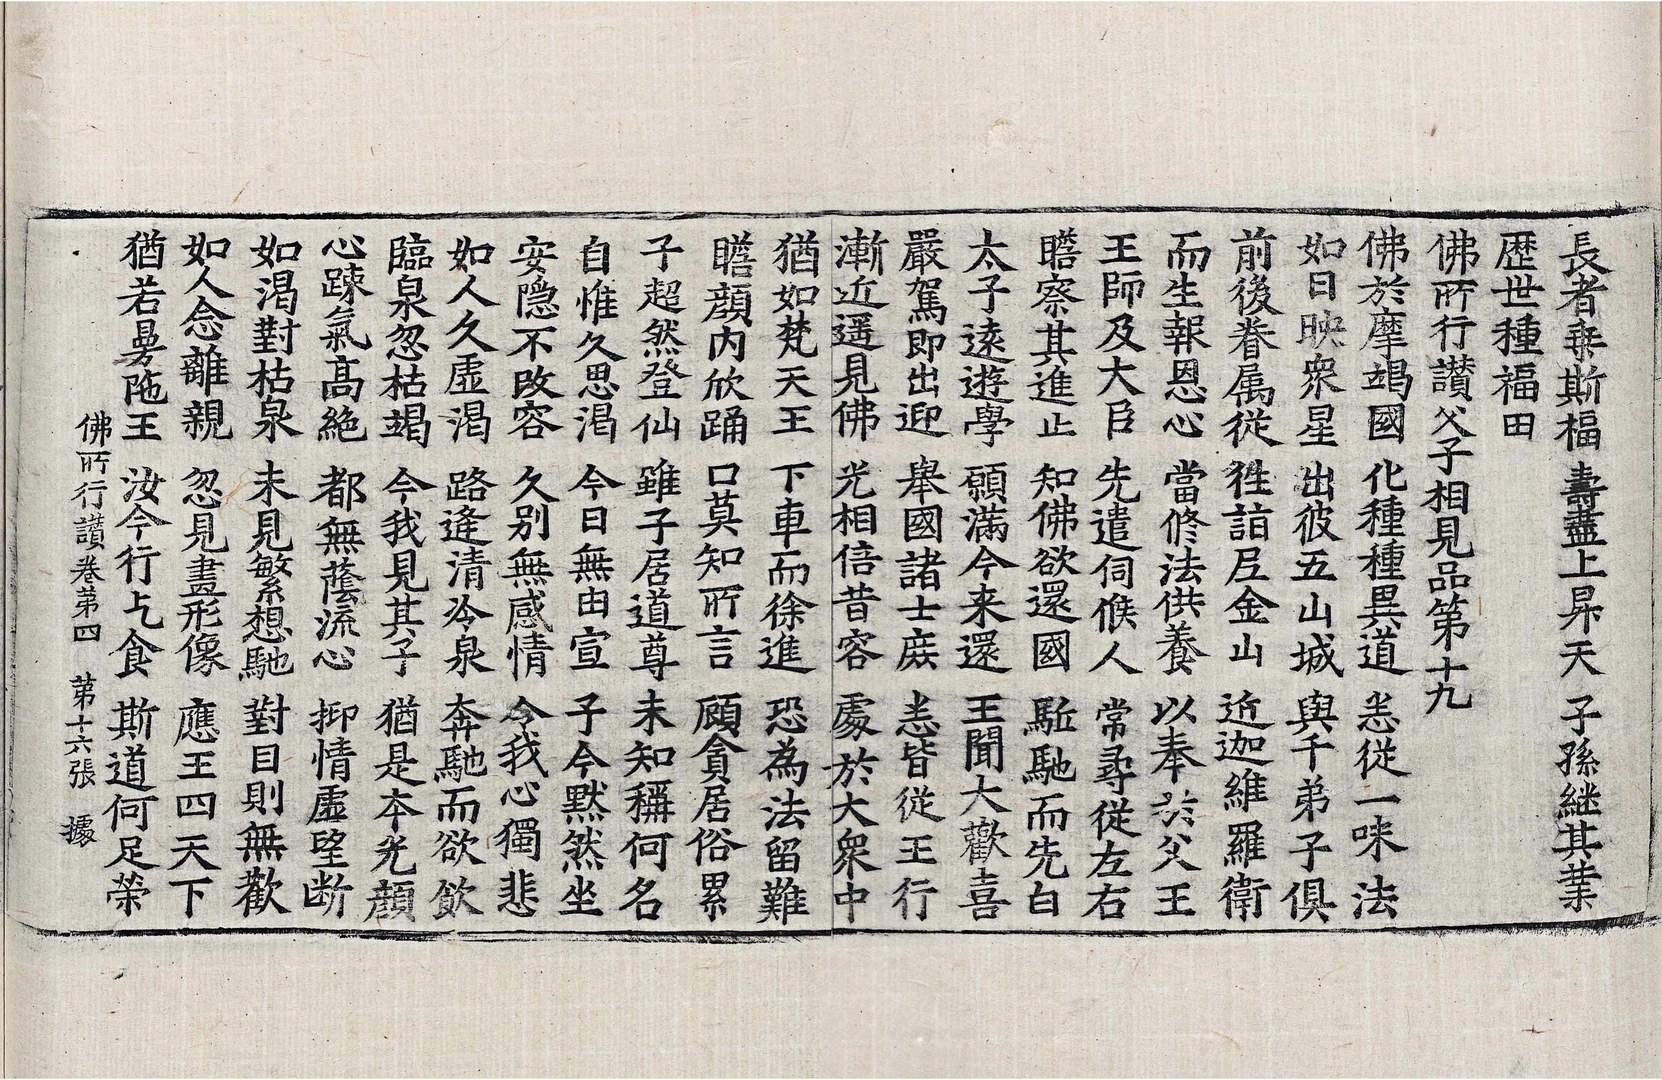 長者乗斯福　壽盡上昇天　子孫継其業
歴世種福田
佛所行讃父子相見品第十九
佛於摩竭國　化種種異道　悉從一味法
如日映衆星　出彼五山城　與千弟子俱
前後眷属從　往詣尼金山　近迦維羅衛
而生報恩心　當修法供養　以奉於父王
王師及大臣　先遣伺候人　常尋從左右
瞻察其進止　知佛欲還國　駈馳而先白
太子遠遊學　願滿今来還　王聞大歡喜
嚴駕即出迎　舉國諸士庻　悉皆從王行
漸近遥見佛　光相倍昔容　處於大衆中
猶如梵天王　下車而徐進　恐為法留難
瞻顔内欣踊　口莫知所言　顧貪居俗累
子超然登仙　雖子居道尊　未知稱何名
自惟久思渇　今日無由宣　子今默然坐
安隠不改容　久別無感情　令我心獨悲
如人久虛渇　路逢清冷泉　奔馳而欲飲
臨泉忽枯竭　今我見其子　猶是本光顔
心踈氣高絶　都無蔭流心　抑情虛望断
如渇對枯泉　未見繁想馳　對目則無歡
如人念離親　忽見畫形像　應王四天下
猶若曼陁王　汝今行乞食　斯道何足榮
佛所行讃卷第四　第十六張　據